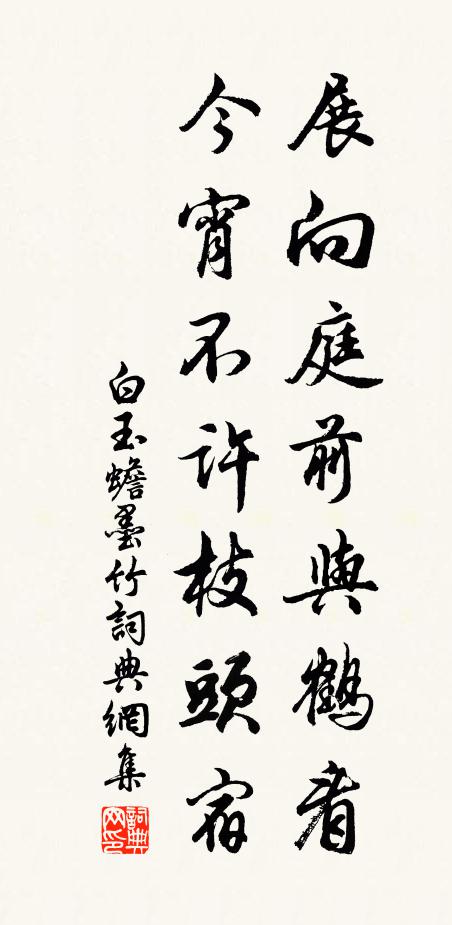 展向庭前與鶴看
今宵不許枝頭宿
白玉蟾墨竹詞典網集
詞典網印